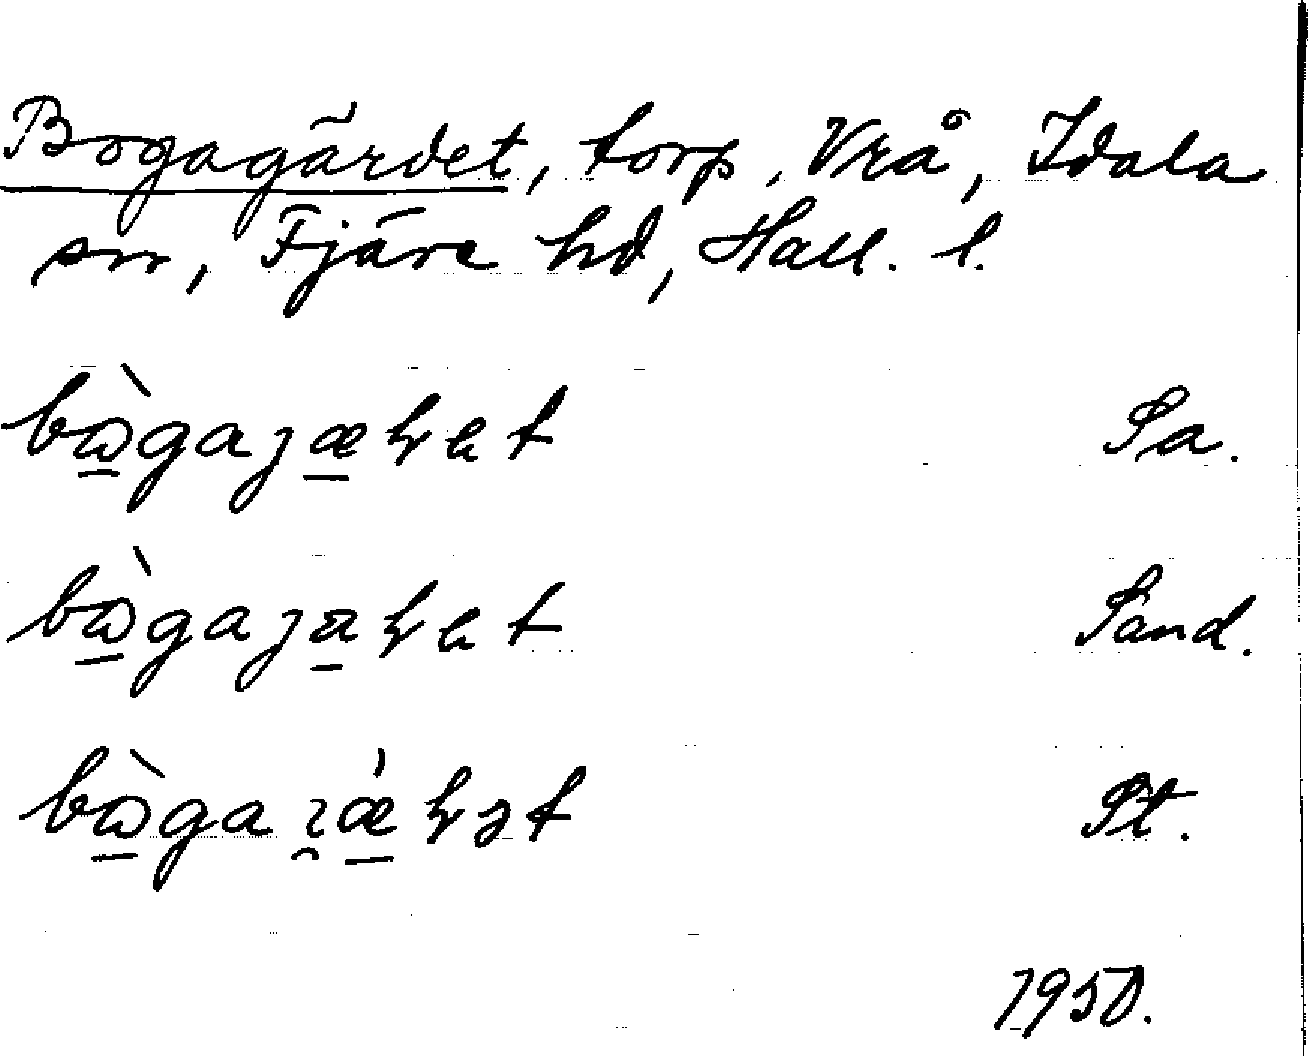 Bogagärdet, torp, Vrå, Idala
sn, Fjäre hd, Hall. l.
bɷ̲̀gaȷæ̲ꞕet Sa.
bɷ̲̀gaȷa̲ꞕet Sand.
bɷ̲̀gaı̯æ̲̀ꞕət St.
1950.